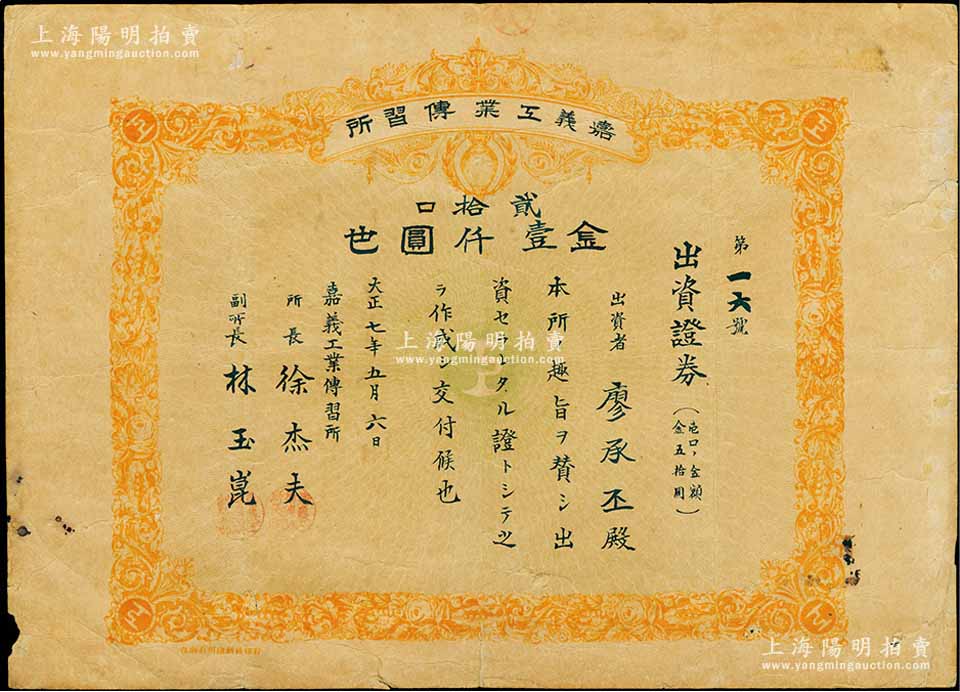 上海陽明拍賣
www.yangmingauction.com
上海陽明拍賣
www.yangmingauction.com
嘉義工業傳習所
貳拾口
金壹仟圓也
第一六號
出資證券
(壱口ノ金額
金五拾圓)
出資者 廖承丕殿
本所ノ趣旨ヲ賛シ出
資セラレタル證トシテ之
ヲ作成シ交付候也
大正七年五月六日
嘉義工業傳習所
所長 徐杰夫
副所長 林玉崑
上海陽明拍賣
www.yangmingauction.com
上海陽明拍賣
www.yangmingauction.com